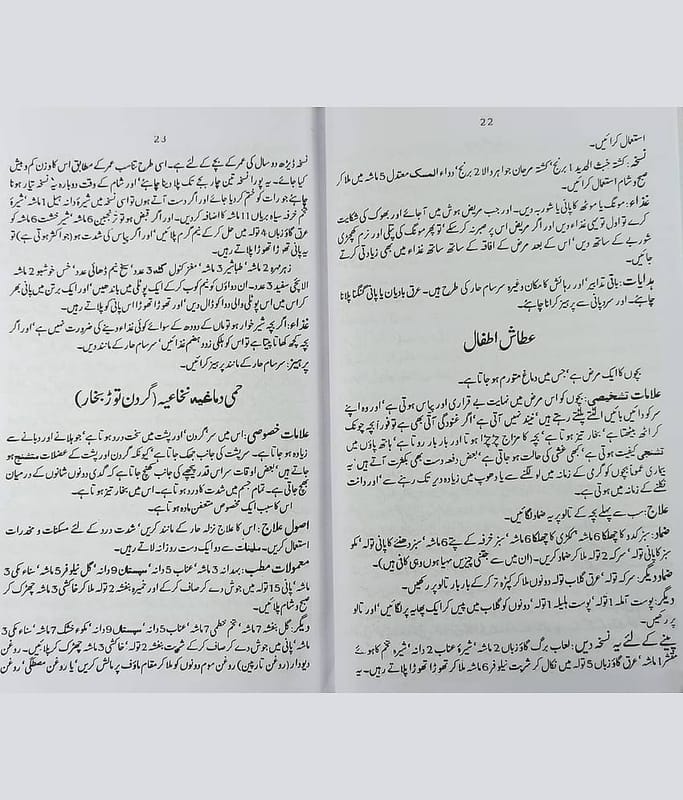 22
استعمال کرائیں۔
نسخہ: کشتہ خبث الحدید 1 برنج، کشتہ مرجان جواہر والا 2 برنج، دواء المسک معتدل 5 ماشہ میں ملا کر
صبح و شام استعمال کرائیں۔
غذاء: مونگ یا موٹھ کا پانی یا شوربہ دیں۔ اور جب مریض ہوش میں آجائے اور بھوک کی شکایت
کرے تو اول تو یہی غذاء دیں اور اگر مریض اس پر صبر نہ کر سکے، تو پھر مونگ کی پتلی اور نرم کھچڑی
شوربے کے ساتھ دیں، اس کے بعد مرض کے افاقہ کے ساتھ ساتھ غذاء میں بھی زیادتی کرتے
جائیں۔
ہدایات: باقی تدابیر اور رہائش کا مکان وغیرہ سرسام حار کی طرح ہیں۔ عرق بادیان یا پانی گنگنا پلانا
چاہئے۔ اور سرد پانی سے پرہیز کرانا چاہئے۔
عطاش اطفال
بچوں کا ایک مرض ہے، جس میں دماغ متورم ہو جاتا ہے۔
علامات تشخیصی: بچوں کو اس مرض میں نہایت بے قراری اور پیاس ہوتی ہے، اور وہ اپنے
سر کو دائیں بائیں الٹتے پلٹتے رہتے ہیں، نیند نہیں آتی ہے، اگر غنودگی آتی بھی ہے تو فوراً بچہ چونک
کر اٹھ بیٹھتا ہے، بخار تیز ہوتا ہے، بچہ کا مزاج چڑچڑا ہوتا اور بار بار روتا ہے، ہاتھ پاؤں میں
تشنجی کیفیت ہوتی ہے، کبھی غشی کی حالت ہو جاتی ہے، بعض دفعہ دست بھی بکثرت آتے ہیں، یہ
بیماری عموماً بچوں کو گرمی کے زمانہ میں لو لگنے سے یا دھوپ میں زیادہ دیر تک رہنے سے، اور دانت
نکلنے کے زمانہ میں ہوتی ہے۔
علاج: سب سے پہلے بچہ کے تالو پر یہ ضماد لگائیں۔
ضماد: سبز کدو کا چھلکا 6 ماشہ، ککڑی کا چھلکا 6 ماشہ، سبز خرفہ کے پتے 6 ماشہ، سبز دھنئے کا پانی تولہ، کو
سبز کا پانی تولہ، سرکہ 2 تولہ ملا کر ضماد کریں۔ (ان میں سے جتنی چیزیں مہیا ہوں وہی کافی ہیں)۔
ضماد دیگر: سرکہ تولہ، عرق گلاب تولہ دونوں ملا کر کپڑہ تر کر کے بار بار تالو پر رکھیں۔
دیگر: پوست آملہ 1 تولہ، پوست ہلیلہ 1 تولہ، دونوں کو گلاب میں پیس کر ایک پھایہ پر لگائیں، اور تالو
پر رکھیں۔
پینے کے لئے یہ نسخہ دیں: لعاب برگ گاؤزباں 2 ماشہ، شیرۂ عناب 2 دانہ، شیرہ تخم کاہوئے
مقشر 1 ماشہ، عرق گاؤزباں 5 تولہ میں نکال کر شربت نیلوفر 6 ماشہ ملا کر تھوڑا تھوڑا پلاتے رہیں۔ یہ
23
نسخہ ڈیڑھ دو سال کی عمر کے بچے کے لئے ہے۔ اسی طرح تناسب عمر کے مطابق اس کا وزن کم و بیش
کیا جائے۔ یہ پورا نسخہ تین چار بجے تک پلا دینا چاہئے، اور شام کے وقت دوبارہ یہ نسخہ تیار ہونا
چاہئے جو رات کو ختم کر دیا جائے۔ اور اگر دست آتے ہوں تو اسی نسخہ میں شیرۂ دانہ ہیل 1 ماشہ، شیرۂ
تخم خرفہ سیاہ بریاں 11 ماشہ کا اضافہ کر دیں۔ اور اگر قبض ہو تو ترنجبین 6 ماشہ، شیر خشت 6 ماشہ کو
عرق گاؤزباں 4 تولہ میں حل کر کے نیم گرم پلائیں، اور اگر پیاس کی شدت ہو (جو اکثر ہوتی ہے) تو
یہ پانی تھوڑا تھوڑا پلاتے رہیں۔
زہرمہرہ 2 ماشہ، طباشیر 3 ماشہ، مغز کنول گٹہ 3 عدد، سیخ نیم ڈھائی عدد، خس خوشبو 2 ماشہ
الائچی سفید 3 عدد۔ ان دواؤں کو نیم کوب کر کے ایک پوٹلی میں باندھیں، اور ایک برتن میں پانی بھر
کر اس میں اس پوٹلی والی دوا کو ڈال دیں، اور تھوڑا تھوڑا اس پانی کو پلاتے رہیں۔
غذاء: اگر بچہ شیر خوار ہو تو ماں کے دودھ کے سوائے کوئی غذاء دینے کی ضرورت نہیں ہے، اور اگر
بچہ کچھ کھاتا پیتا ہے تو اس کو ہلکی زود ہضم غذائیں، سرسام حار کے مانند دیں۔
پرہیز: سرسام حار کے مانند پرہیز کرائیں۔
حمی دماغیہ نخاعیہ (گردن توڑ بخار)
علامات خصوصی: اس میں سر، گردن، اور پشت میں سخت درد ہوتا ہے، جو ہلانے اور دبانے سے
زیادہ ہو جاتا ہے۔ سر پشت کی جانب جھک جاتا ہے، کیونکہ گردن اور پشت کے عضلات متشنج ہو
جاتے ہیں، بعض اوقات سر اس قدر پیچھے کی جانب کھنچ جاتا ہے کہ گدی دونوں شانوں کے درمیان
کھنچ جاتی ہے۔ تمام جسم میں شدت کا درد ہوتا ہے۔ اس میں بخار تیز ہوتا ہے۔
اس کا سبب ایک مخصوص متعفن مادہ ہوتا ہے۔
اصول علاج: اس کا علاج نزلہ حار کے مانند کریں، شدت درد کے لئے مسکنات و مخدرات
استعمال کریں۔ ملینات سے دو ایک دست روزانہ لاتے رہیں۔
معمولات مطب: بہدانہ 3 ماشہ، عناب 5 دانہ، سپستان 9 دانہ، گل نیلوفر 5 ماشہ، سناء مکی 3
ماشہ، پانی 15 تولہ میں جوش دے کر صاف کر کے اور خمیرہ بنفشہ 2 تولہ ملا کر خاکشی 3 ماشہ چھڑک کر
صبح و شام پلائیں۔
دیگر: گل بنفشہ 7 ماشہ، تخم خطمی 7 ماشہ، عناب 5 دانہ، سپستان 9 دانہ، مکوء خشک 7 ماشہ، سناء مکی 3
ماشہ، پانی میں جوش دے کر صاف کر کے شربت بنفشہ 2 تولہ، خاکشی 3 ماشہ چھڑک کر پلائیں۔ روغن
دیودار (روغن تارپین) روغن سوم دونوں کو ملا کر مقام ماؤف پر مالش کریں، یا روغن مصطگی، روغن